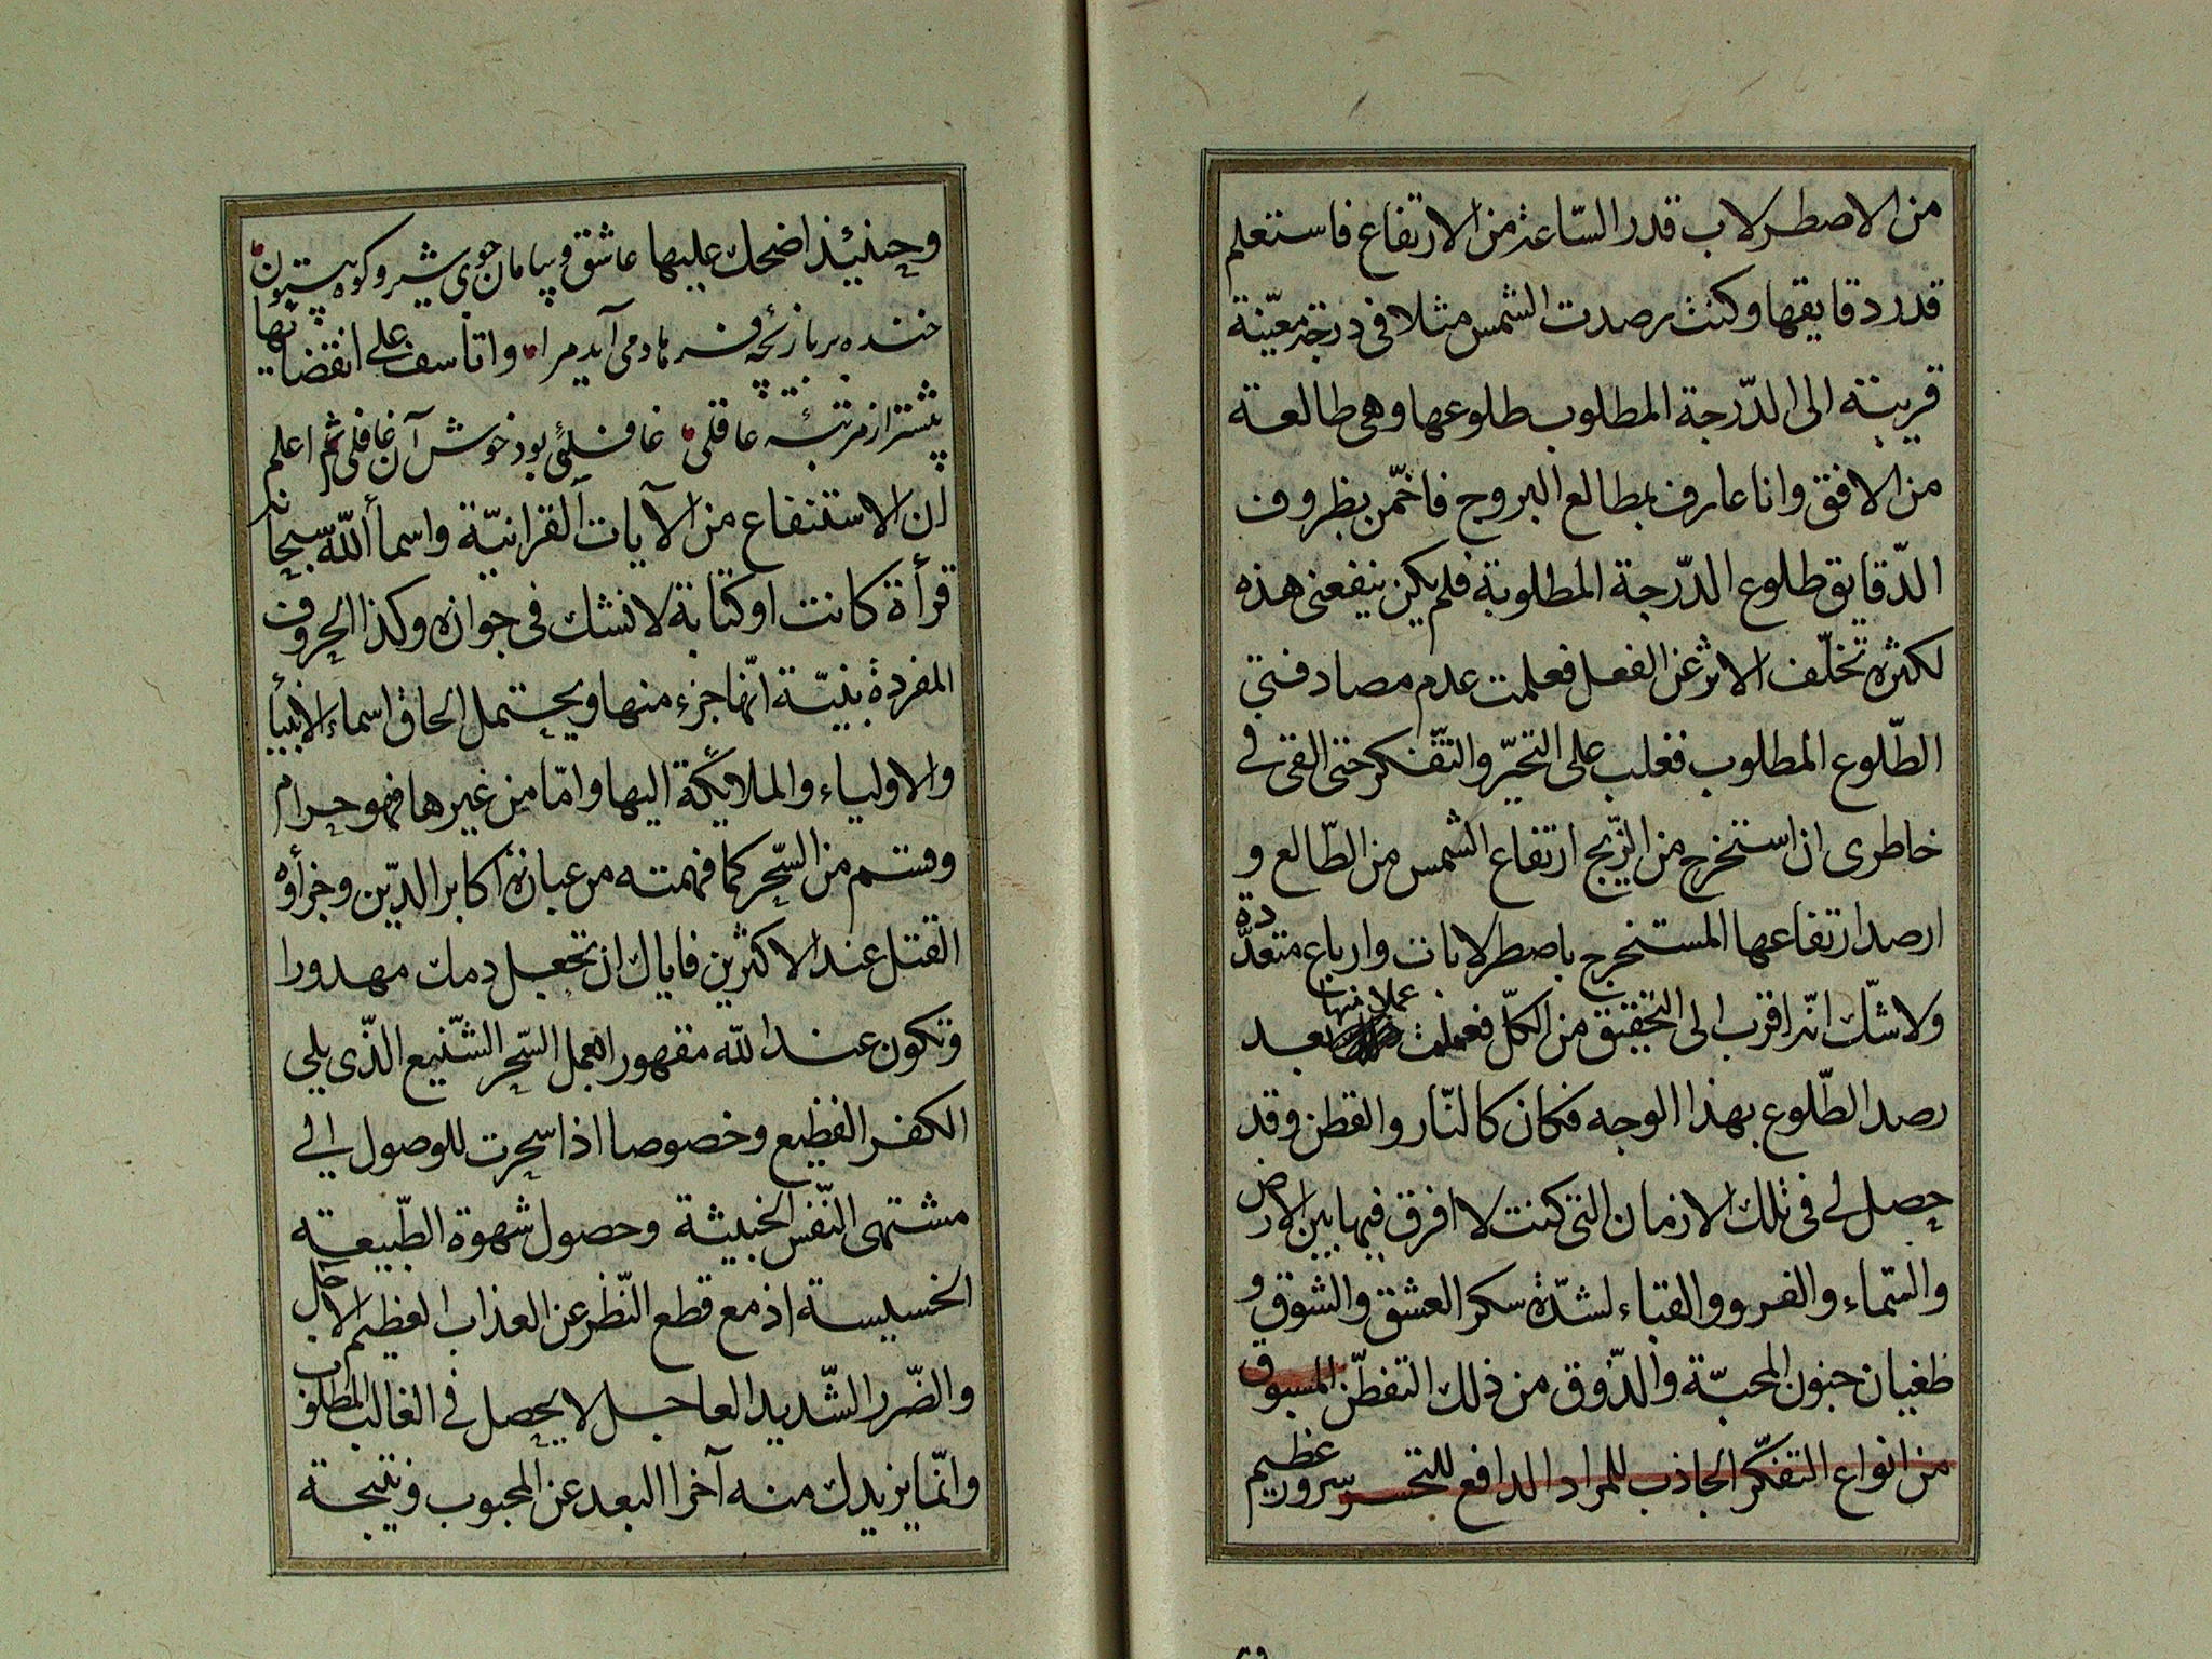 من الاصطرلاب قدر الساعة من الارتفاع فاستعلم
قدر دقايقها وكنت رصدت الشمس مثلا فى درجة معيّنة
قريبة الى الدّرجة المطلوب طلوعها وهى طالعة
من الافق وانا عارف بمطالع البروج فاخمّن بظروف
الدّقايق طلوع الدّرجة المطلوبة فلم يكن ينفعنى هذه
لكثرة تخلّف الاثر عن الفعل فعلمت عدم مصادفتى
الطّلوع المطلوب فغلب على التحيّر والتّفكر حتى القى فى
خاطرى ان استخرج من الزّيج ارتفاع الشمس من الطّالع و
ارصد ارتفاعها المستخرج باصطرلابات وارباع متعدّدة
ولا شكّ انّه اقرب الى التحقيق من الكلّ فعملت عملا منها بعد
رصد الطّلوع بهذا الوجه فكان كالنّار والقطن وقد
حصل لى فى تلك الازمان التى كنت لا افرق فيما بين الارض
والسّماء والفرو والقباء لشدّة سكر العشق والشوق و
طغيان جنون المحبّة والذّوق من ذلك التفطّن المسبوق
من انواع التفكّر الجاذب للمراد الدافع للتحسر سرور عظيم
وحينئذ اضحك عليها عاشق وپيامان جوى شير وكوه بيستون
خنده بر بازئچه فرهاد مى آيد مرا واتأسف على انقضائها
پيشتر از مرتبئه عاقلى غافلئى بود خوش آن غافلى ثم اعلم
ان الاستنفاع من الآيات القرانيّة واسماء اللّه سبحانه
قرأة كانت او كتابة لا نشك فى جوازه وكذا الحروف
المفردة بنيّة انّها جزء منها ويحتمل الحاق اسماء الانبيأ
والاولياء والملائكة اليها وامّا من غيرها فهو حرام
وقسم من السّحر كما فهمته من عبارة اكابر الدّين وجزأوه
القتل عند الاكثرين فاياك ان تجعل دمك مهدورا
وتكون عند اللّه مقهورا بعمل السّحر الشّنيع الذّى يلى
الكفر الفظيع وخصوصا اذا سحرت للوصول الى
مشتهى النّفس الخبيثة وحصول شهوة الطّبيعة
الخسيسة اذ مع قطع النّظر عن العذاب العظيم الاجل
والضّرر الشّديد العاجل لا يحصل فى الغالب المطلوب
وانّما يزيدك منه آخرا البعد عن المحبوب ونتيجة